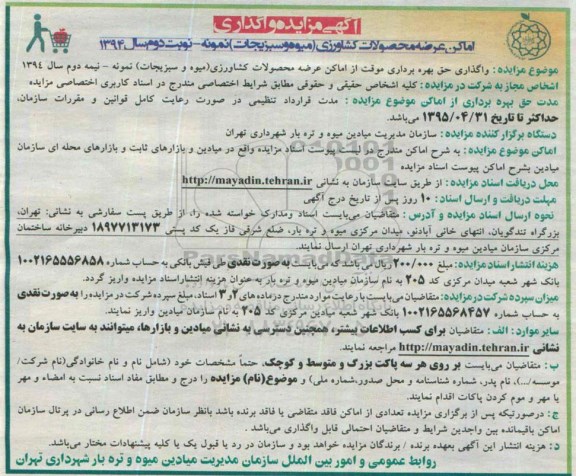 آگهی مزایده واگذاری
اماکن عرضه محصولات کشاورزی (میوه و سبزیجات) نمونه - نوبت دوم سال ۱۳۹۴
موضوع مزایده : واگذاری حق بهره برداری موقت از اماکن عرضه محصولات کشاورزی(میوه و سبزیجات) نمونه - نیمه دوم سال ۱۳۹۴
اشخاص مجاز به شرکت در مزایده : کلیه اشخاص حقیقی و حقوقی مطابق شرایط اختصاصی مندرج در اسناد کاربری اختصاصی مزایده
مدت حق بهره برداری از اماکن موضوع مزایده : مدت قرارداد تنظیمی در صورت رعایت کامل قوانین و مقررات سازمان،
حداکثر تا تاریخ ۱۳۹۵/۰۴/۳۱ می‌باشد.
دستگاه برگزار کننده مزایده : سازمان مدیریت میادین میوه و تره بار شهرداری تهران
اماکن موضوع مزایده : به شرح اماکن مندرج در لیست پیوست اسناد مزایده واقع در میادین و بازارهای ثابت و بازارهای محله ای سازمان
میادین بشرح اماکن پیوست اسناد مزایده
محل دریافت اسناد مزایده : از طریق سایت سازمان به نشانی http://mayadin.tehran.ir
مهلت دریافت و ارسال اسناد : ۱۰ روز پس از تاریخ درج آگهی
نحوه ارسال اسناد مزایده و آدرس : متقاضیان می‌بایست اسناد ومدارک خواسته شده را، از طریق پست سفارشی به نشانی: تهران،
بزرگراه تندگویان، انتهای خانی آبادنو، میدان مرکزی میوه و تره بار، ضلع شرقی فاز یک کد پستی ۱۸۹۷۷۱۳۱۷۳ دبیرخانه ساختمان
مرکزی سازمان میادین میوه و تره بار شهرداری تهران ارسال نمایند.
هزینه انتشار اسناد مزایده : مبلغ ۲۰۰/۰۰۰ ریال می باشد که می‌بایست به صورت نقدی طی فیش بانکی به حساب شماره ۱۰۰۲۱۶۵۵۵۶۸۵۸
بانک شهر شعبه میدان مرکزی کد ۲۰۵ به نام سازمان میادین میوه و تره بار به عنوان هزینه انتشار اسناد مزایده واریز گردد.
میزان سپرده شرکت در مزایده : متقاضیان می‌بایست با رعایت موارد مندرج در ماده‌های ۲ و ۳ اسناد، مبلغ سپرده شرکت در مزایده را به صورت نقدی
به حساب شماره ۱۰۰۲۱۶۵۵۶۸۴۵۷ بانک شهر شعبه میدان مرکزی کد ۲۰۵ به نام سازمان میادین واریز نمایند.
سایر موارد : الف : متقاضیان برای کسب اطلاعات بیشتر، همچنین دسترسی به نشانی میادین و بازارها، میتوانند به سایت سازمان به
نشانی http://mayadin.tehran.ir مراجعه نمایند.
ب : متقاضیان می‌بایست بر روی هر سه پاکت بزرگ و متوسط و کوچک، حتماً مشخصات خود (شامل نام و نام خانوادگی(نام شرکت/
موسسه/...)، نام پدر، شماره شناسنامه و محل صدور،شماره ملی) و موضوع(نام) مزایده را درج و مطابق مفاد اسناد نسبت به امضاء و مهر
یا مهر و موم کردن پاکات اقدام نمایند.
ج : درصورتیکه پس از برگزاری مزایده تعدادی از اماکن فاقد متقاضی یا فاقد برنده باشد بانظر سازمان ضمن اطلاع رسانی در پرتال سازمان
اماکن باقیمانده بین واجدین شرایط و متقاضیان احتمالی قابل واگذاری می‌باشد.
د : هزینه انتشار این آگهی بعهده برنده / برندگان مزایده خواهد بود و سازمان در رد یا قبول یک یا کلیه پیشنهادات مختار می‌باشد.
روابط عمومی و امور بین الملل سازمان مدیریت میادین میوه و تره بار شهرداری تهران